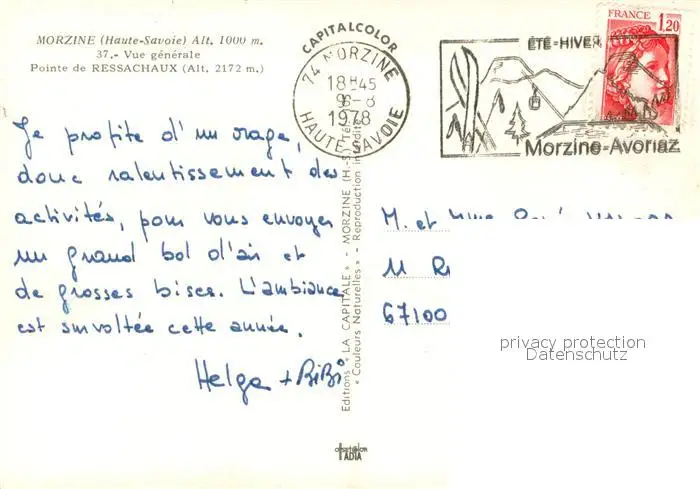 MORZINE (Haute-Savoie) Alt. 1000 m.
37.- Vue générale
Pointe de RESSACHAUX (Alt. 2172 m.)
CAPITALCOLOR
74 MORZINE
18H45
9-8
1978
HAUTE-SAVOIE
ÉTÉ-HIVER
Morzine-Avoriaz
FRANCE 1,20
Je profite d'un orage,
donc ralentissement des
activités, pour vous envoyer
un grand bol d'air et
de grosses bises. L'ambiance
est survoltée cette année.
Helga + BiBi
Editions « LA CAPITALE » - MORZINE (H.-S.) Tél.
« Couleurs Naturelles » - Reproduction interdite
M. et Mme René
11 R
67100
privacy protection
Datenschutz
offsetcolor
IADIA